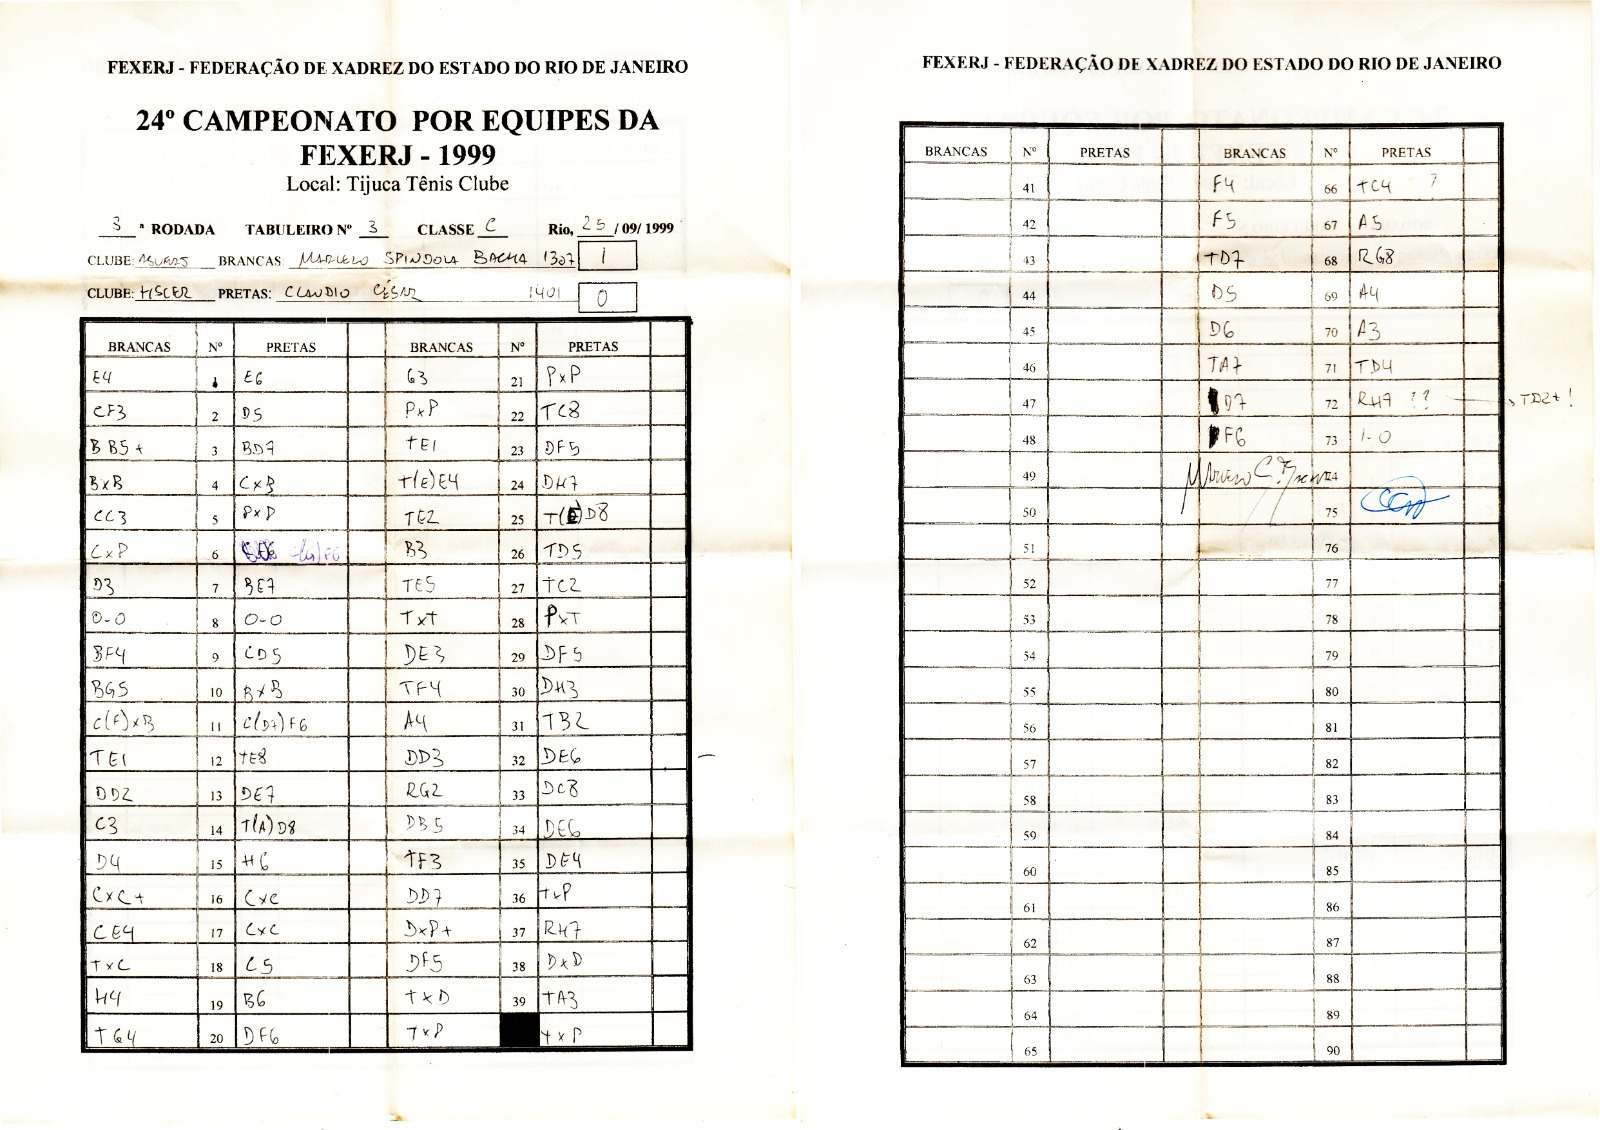 FEXERJ - FEDERAÇÃO DE XADREZ DO ESTADO DO RIO DE JANEIRO
24º CAMPEONATO POR EQUIPES DA
FEXERJ - 1999
Local: Tijuca Tênis Clube
3 ª RODADA TABULEIRO Nº 3 CLASSE C Rio, 25 /09/ 1999
CLUBE: BRANCAS: MARCELO SPINDOLA BACHA 1307 1
CLUBE: PRETAS: CLAUDIO CÉSAR 1401 0
BRANCAS Nº PRETAS BRANCAS Nº PRETAS
E4 1 E6 G3 21 PxP
CF3 2 D5 PxP 22 TC8
BB5+ 3 BD7 TE1 23 DF5
BxB 4 CxB T(E)E4 24 DH7
CC3 5 PxP TE2 25 T(E)D8
CxP 6 B3 26 TD5
D3 7 BE7 TE5 27 TC2
0-0 8 0-0 TxT 28 PxT
BF4 9 CD5 DE3 29 DF5
BG5 10 BxB TF4 30 DH3
C(F)xB 11 C(D7)F6 A4 31 TB2
TE1 12 TE8 DD3 32 DE6
DD2 13 DE7 RG2 33 DC8
C3 14 T(A)D8 DB5 34 DE6
D4 15 H6 TF3 35 DE4
CxC+ 16 CxC DD7 36 TxP
CE4 17 CxC DxP+ 37 RH7
TxC 18 C5 DF5 38 DxD
H4 19 B6 TxD 39 TA3
TG4 20 DF6 TxP TxP
FEXERJ - FEDERAÇÃO DE XADREZ DO ESTADO DO RIO DE JANEIRO
BRANCAS Nº PRETAS BRANCAS Nº PRETAS
41 F4 66 TC4 ?
42 F5 67 A5
43 TD7 68 RG8
44 D5 69 A4
45 D6 70 A3
46 TA7 71 TD4
47 D7 72 RH7 ?? TD2+!
48 F6 73 1-0
49 74
50 75
51 76
52 77
53 78
54 79
55 80
56 81
57 82
58 83
59 84
60 85
61 86
62 87
63 88
64 89
65 90